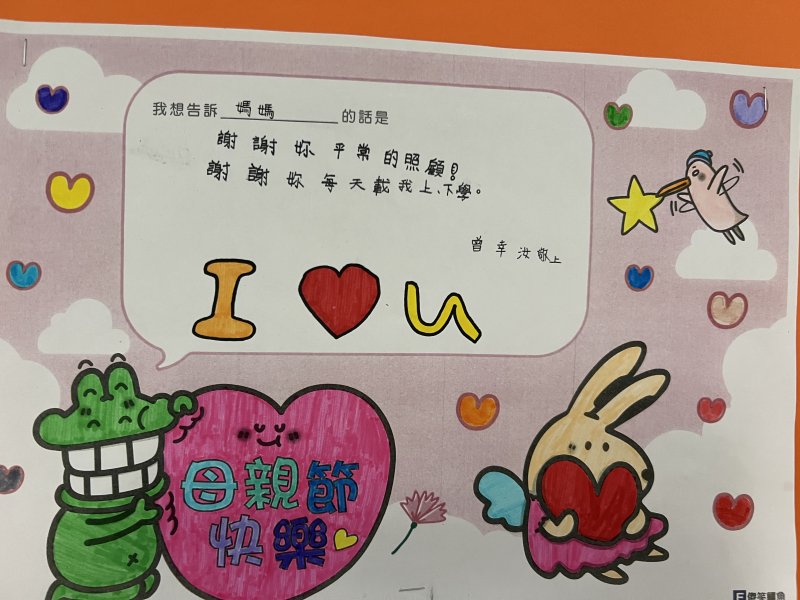 我想告訴 媽媽 的話是
謝謝妳平常的照顧!
謝謝妳每天載我上、下學。
曾幸汝敬上
I ❤ u
母親節
快樂
微笑鱷魚